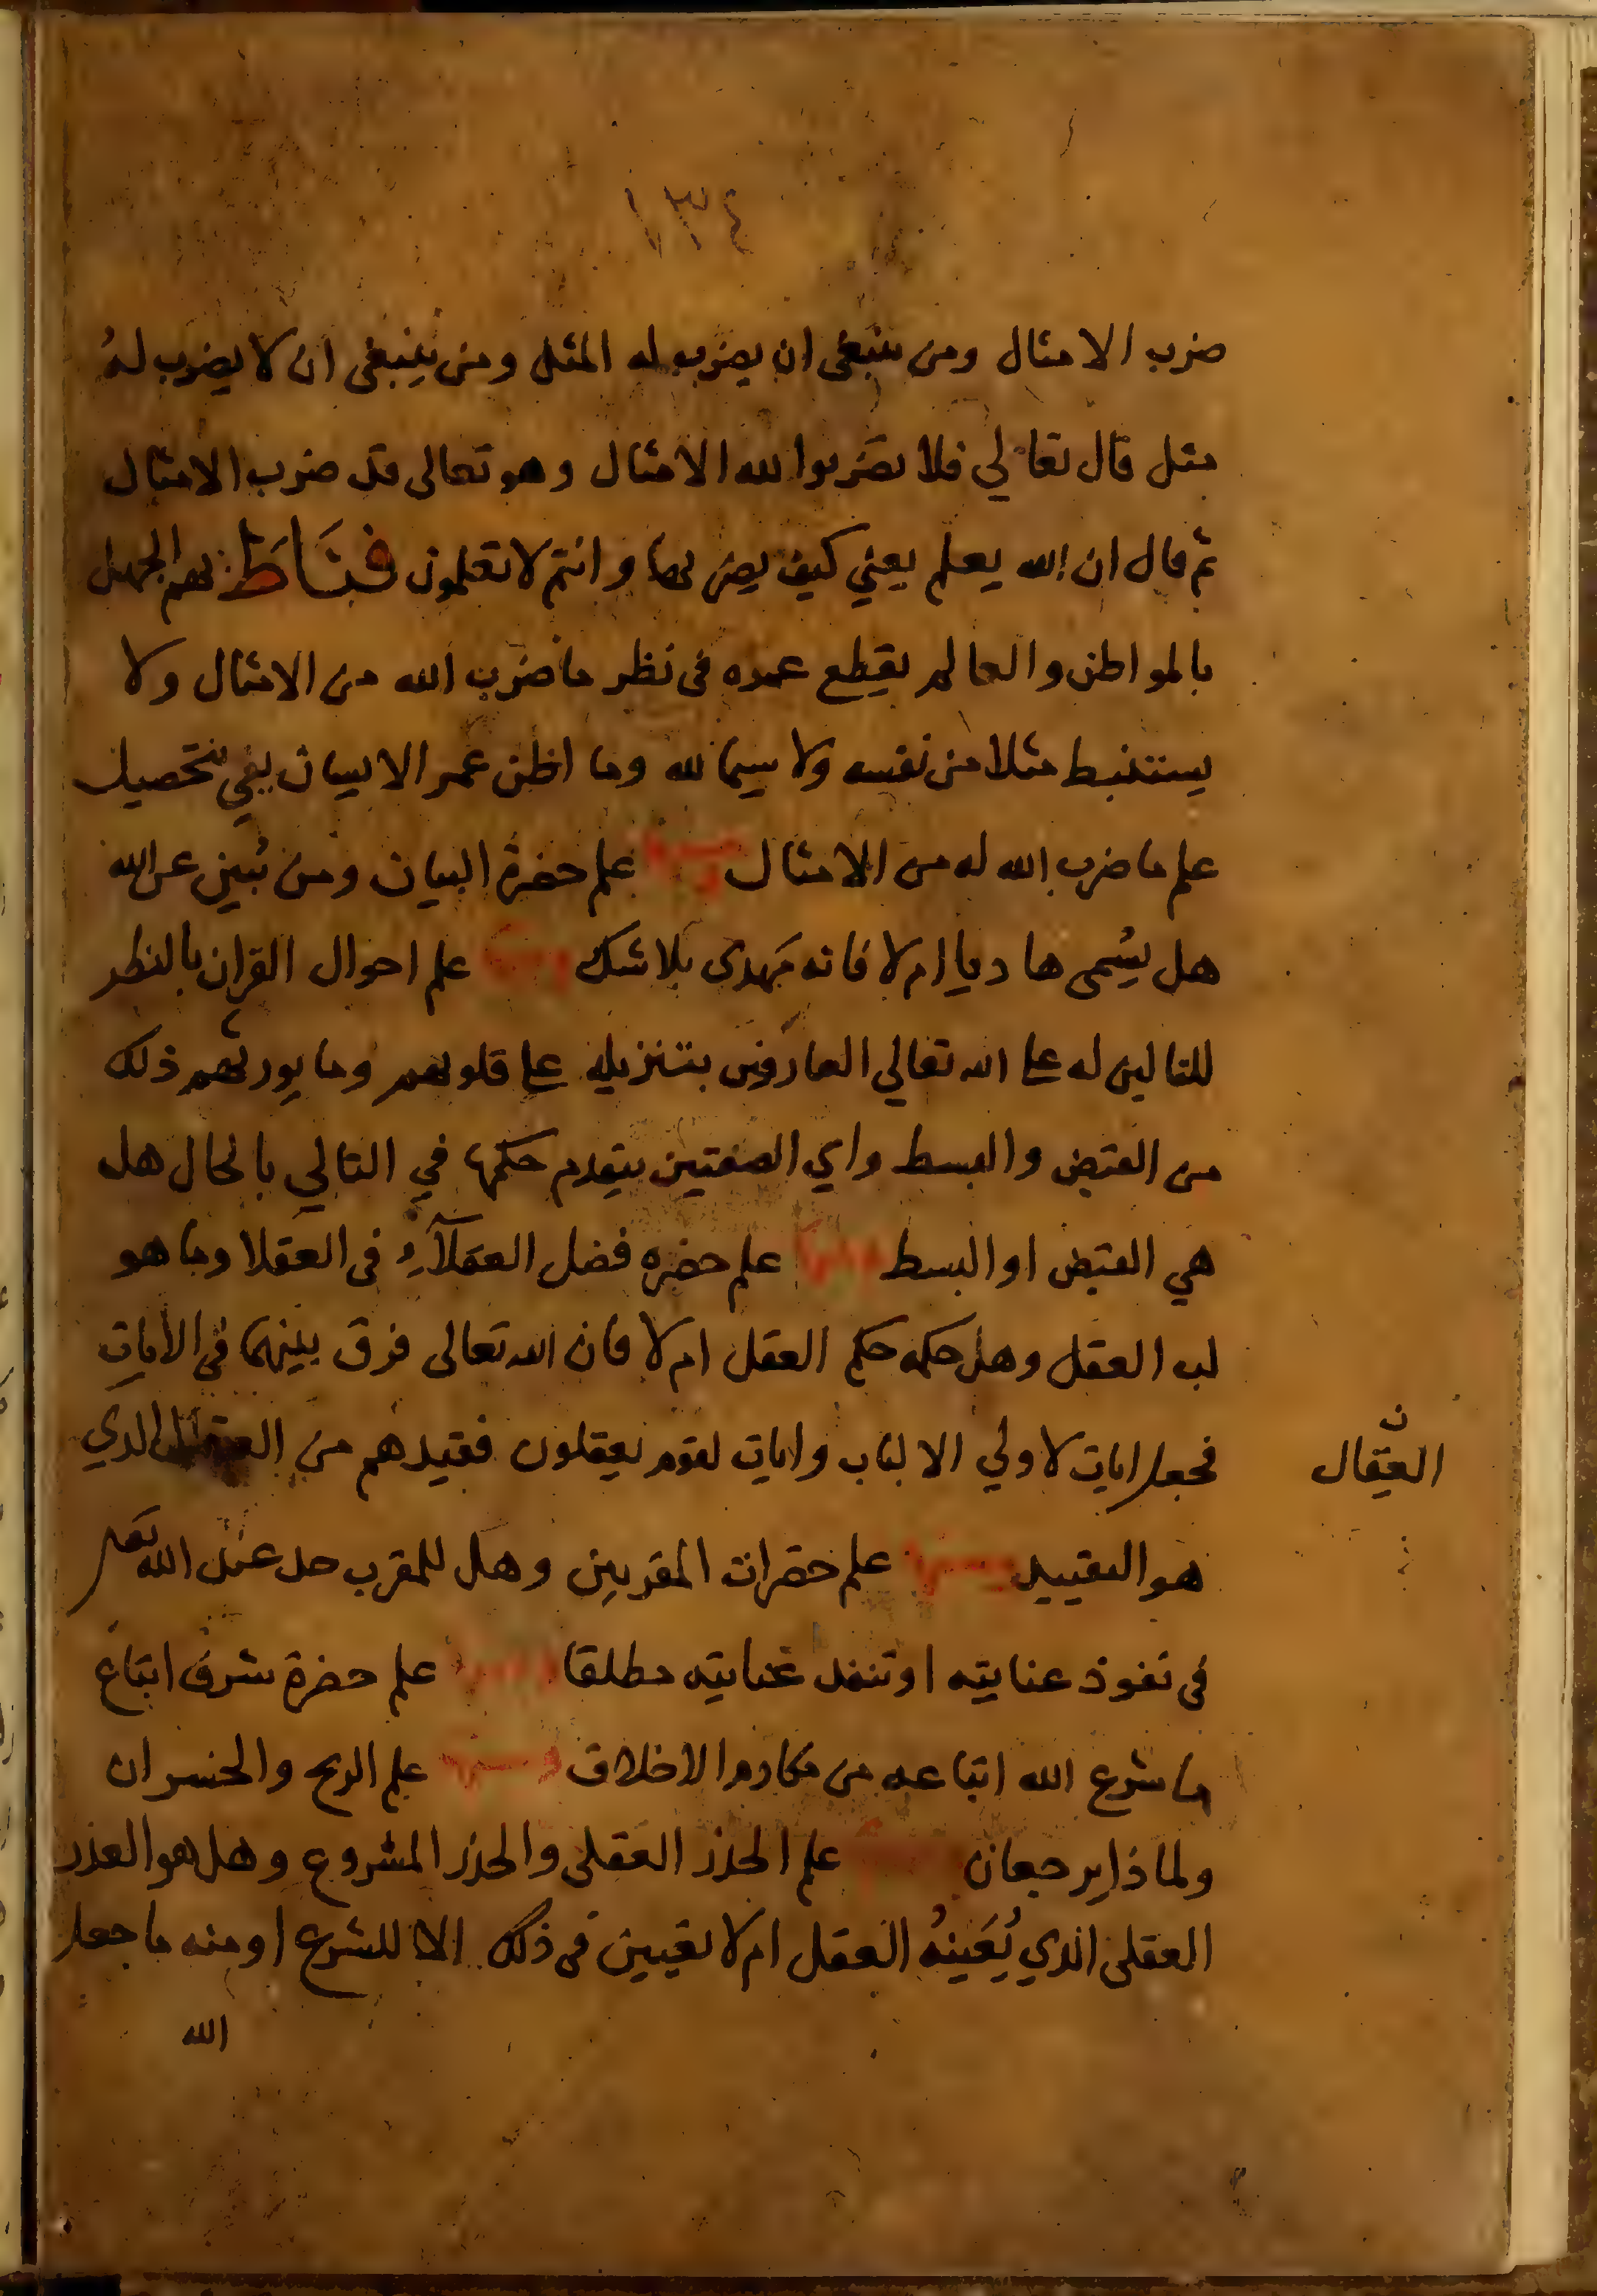 ١٣٤
ضرب الامثال ومن ينبغى ان يضرب له المثل ومن ينبغى ان لا يضرب لهُ
مثل قال تعالي فلا تضربوا لله الامثال وهو تعالى قد ضرب الامثال
ثم قال ان الله يعلم يعني كيف يضربها وانتم لا تعلمون فنَاطَ بهم الجهل
بالمواطن والعالم يقطع عمره فى نظر ما ضرب الله من الامثال ولا
يستنبط مثلا من نفسه ولا سيما لله وما اظن عمر الانسان يفي بتحصيل
علم ما ضرب الله له من الامثال ومنها علم حضرة البيان ومن يُبين عن الله
هل يُسمى هاديا ام لا فانه مهدى بلا شك ومنها علم احوال القران بالنظر
للتالين له على الله تعالي العارفين بتنزيله على قلوبهم وما يورثهم ذلك
من القبض والبسط واي الصفتين يتقدم حكمها في التالي بالحال هل
هي القبض او البسط ومنها علم حضره فضل العقلآءِ فى العقلا وما هو
لب العقل وهل حكمه حكم العقل ام لا فان الله تعالى فرق بينهما فى الايات
فجعل ايات لاولي الالباب وايات لقوم يعقلون فقيدهم من الذي
ن
العقال
هو التقييد ومنها علم حضرات المقربين وهل للمقرب حد عند الله تعالى
فى نفوذ عنايته او تنفذ عنايته مطلقا ومنها علم حضرة شرف اتباع
ما شرع الله اتباعه من مكارم الاخلاق ومنها علم الربح والخسران
ولماذا يرجعان ومنها علم الحذر العقلى والحذر المشروع وهل هو العذر
العقلى الذي يُعَينهُ العقل ام لا تعيين فى ذلك الا للشرع او منه ما جعل
الله